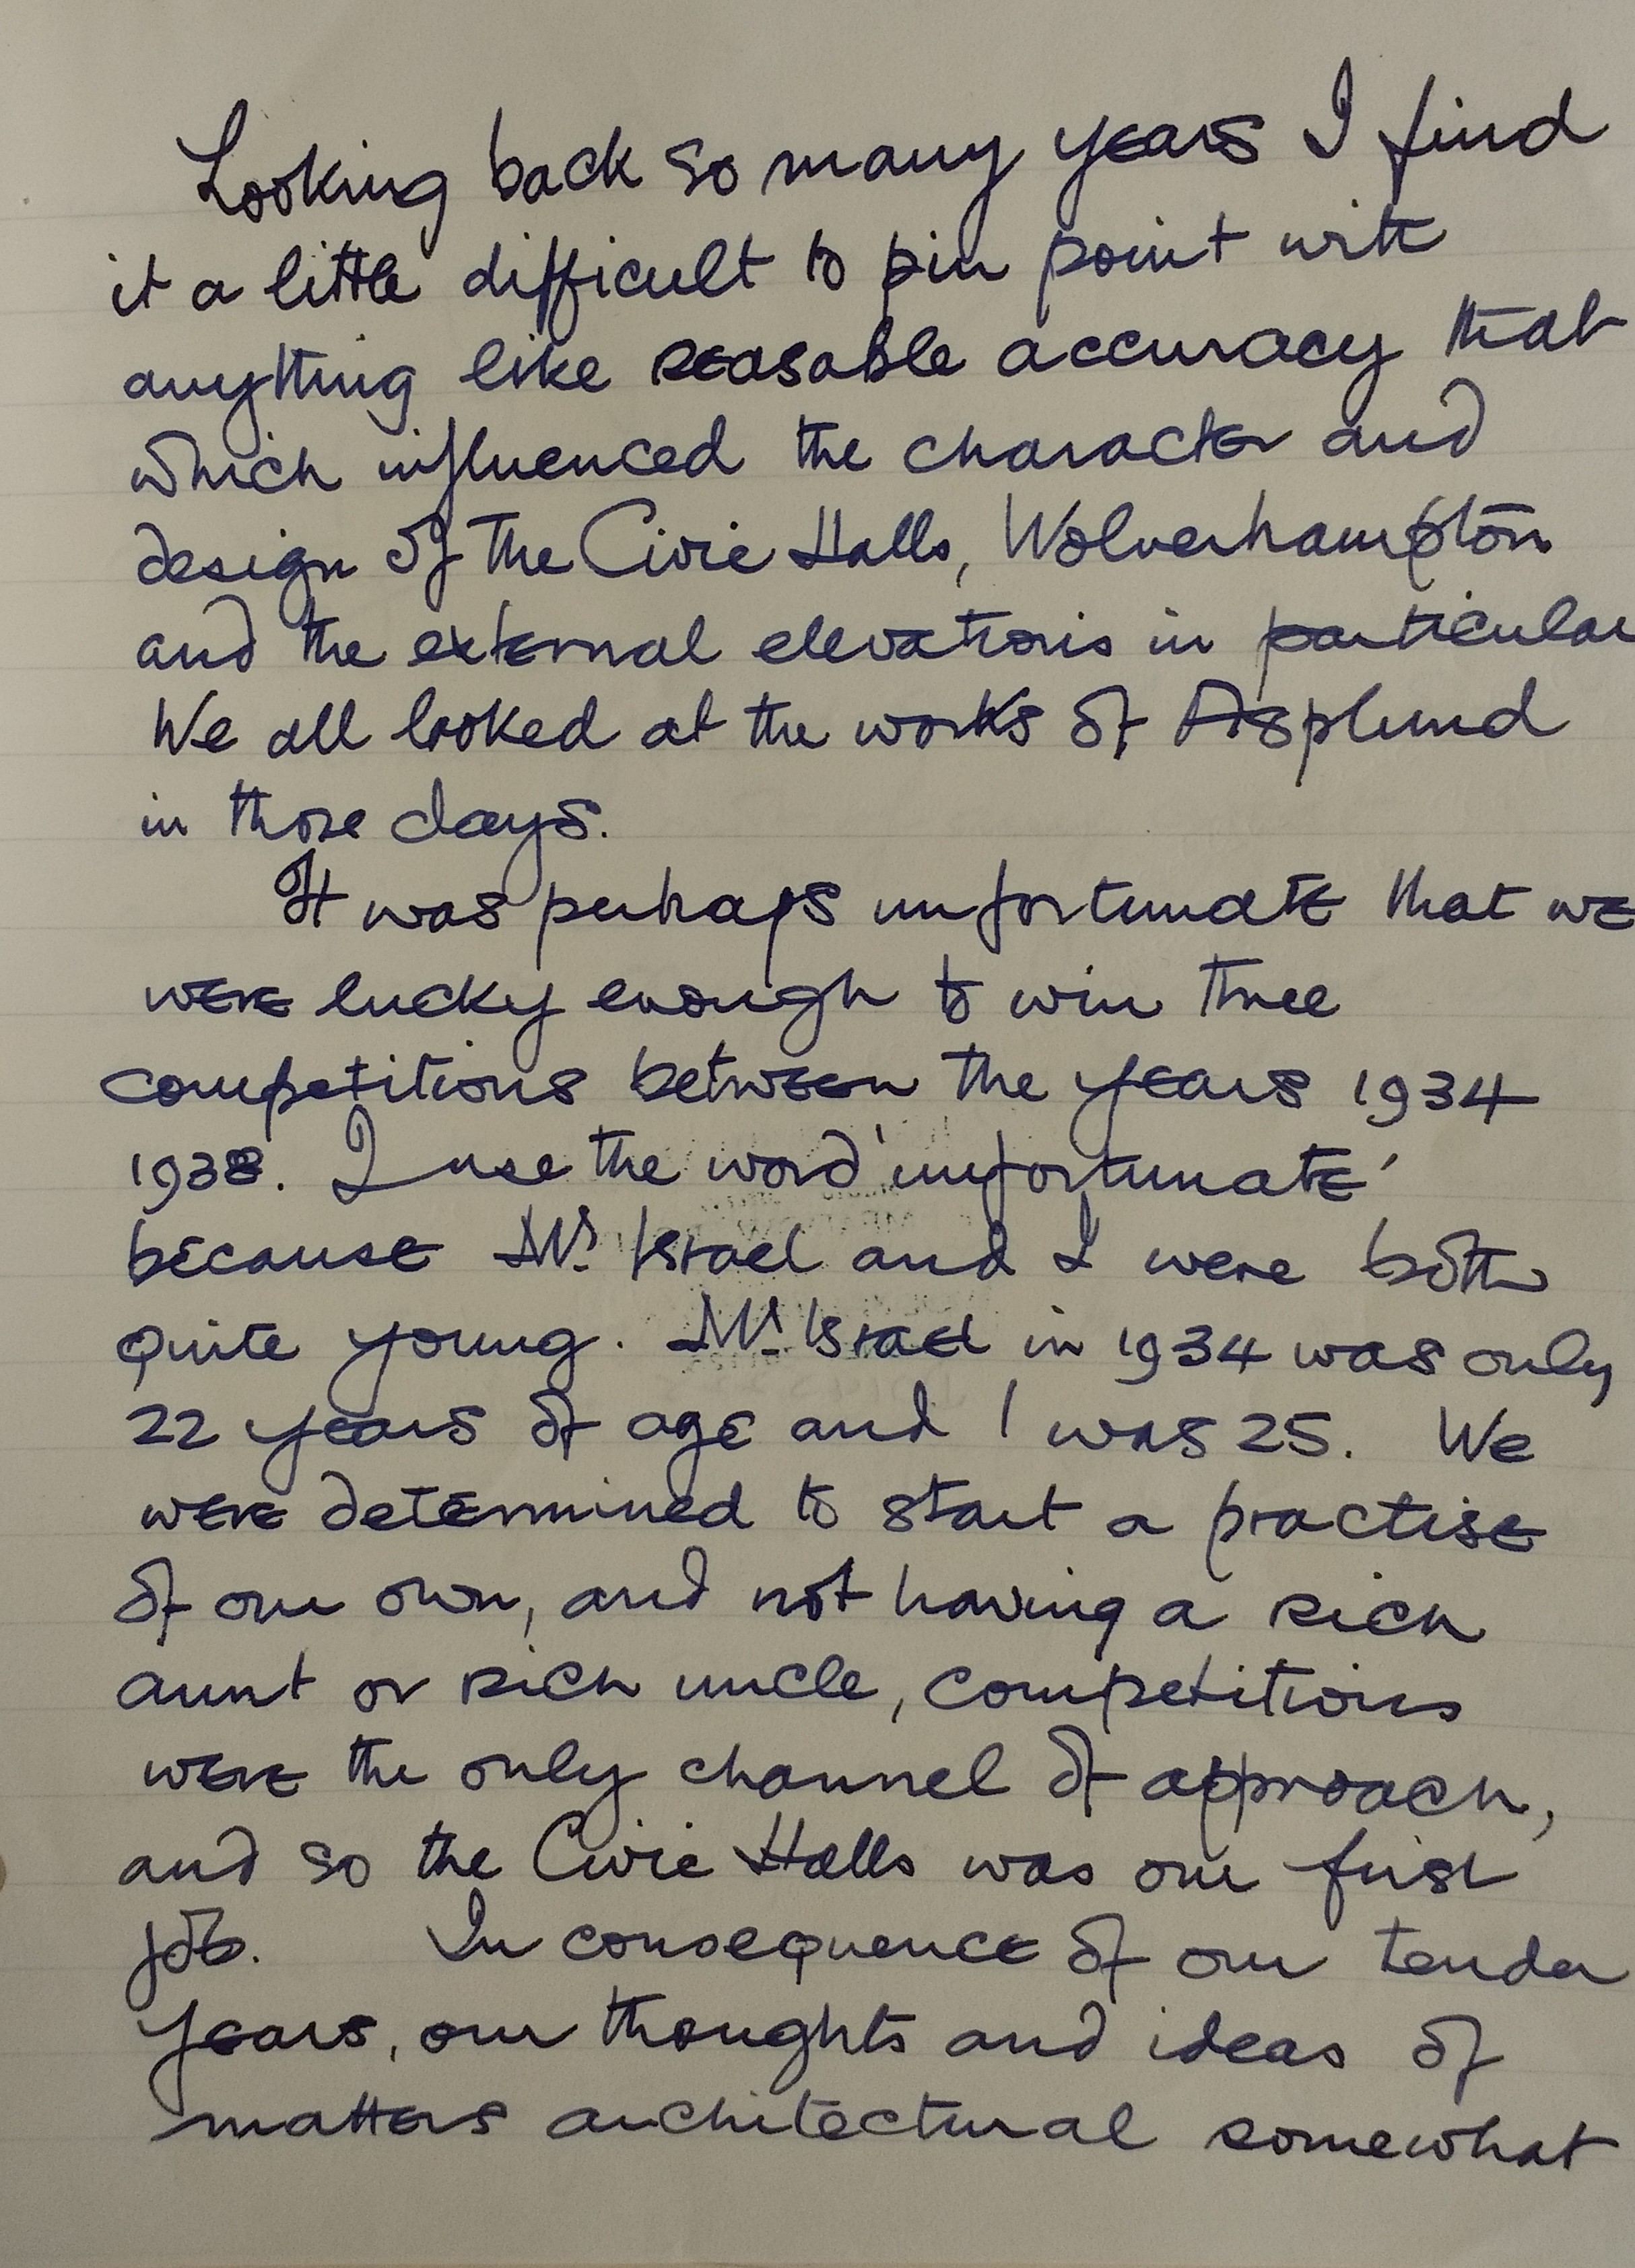 Looking back so many years I find
it a little difficult to pin point with
anything like reasable accuracy that
which influenced the character and
design of the Civic Halls, Wolverhampton
and the external elevations in particular
We all looked at the works of Asplund
in those days.
It was perhaps unfortunate that we
were lucky enough to win three
competitions between the years 1934
1938. I use the word 'unfortunate'
because Mr. Israel and I were both
quite young. Mr. Israel in 1934 was only
22 years of age and I was 25. We
were determined to start a practise
of our own, and not having a rich
aunt or rich uncle, competitions
were the only channel of approach,
and so the Civic Halls was our first
job. In consequence of our tender
years, our thoughts and ideas of
matters architectural somewhat